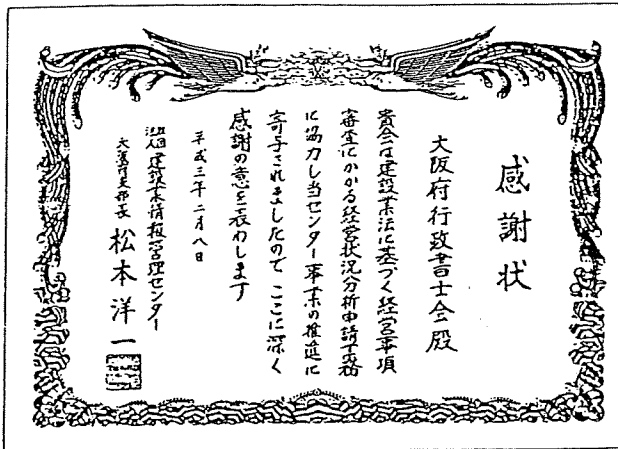 感謝状
大阪府行政書士会殿
貴会は建設業法に基づく経営事項
審査にかかる経営状況分析申請業務
に協力し当センター事業の推進に
寄与されましたので ここに深く
感謝の意を表わします
平成三年二月八日
建設業情報管理センター
大阪府支部長 松本洋一